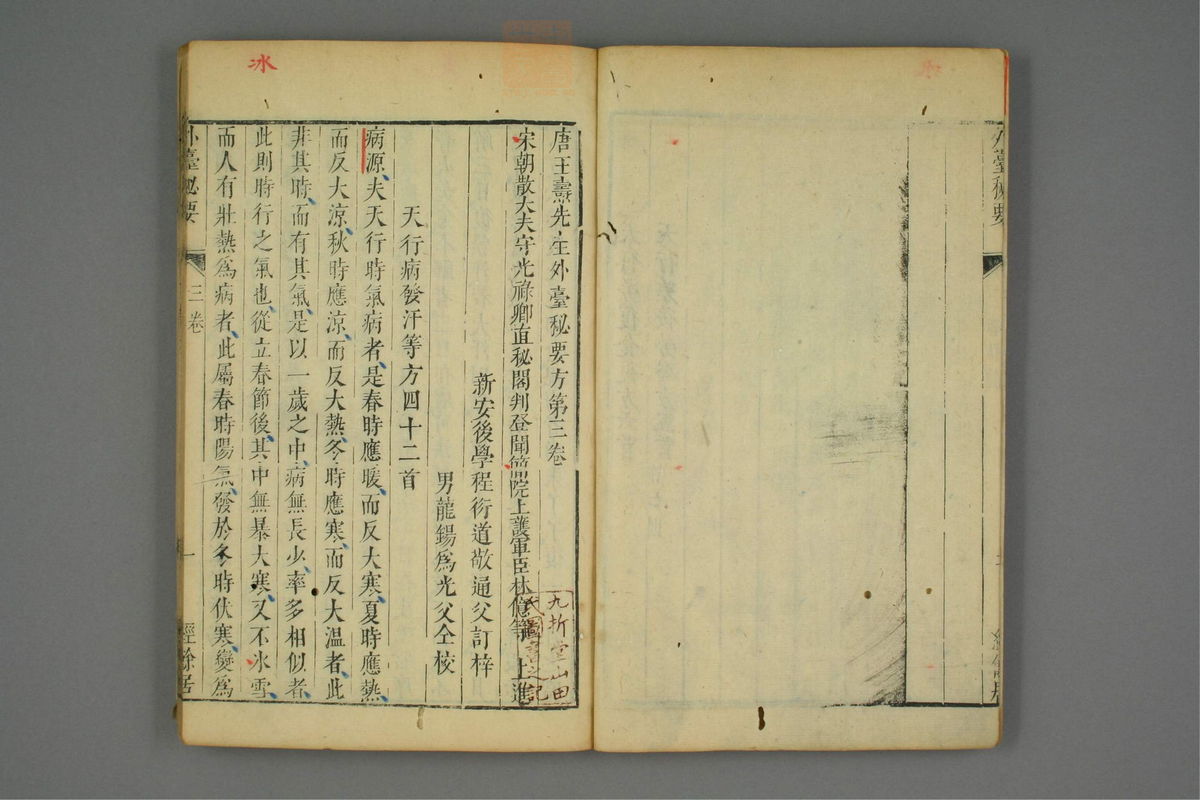 外臺秘要
冰
唐王燾先生外臺秘要方第三卷
宋朝散大夫守光祿卿直秘閣判登聞簡院上護軍臣林億等上進
新安後學程衍道敬通父訂梓
男龍鍚為光父仝校
天行病發汗等方四十二首
病源夫天行時氣病者是春時應暖而反大寒夏時應熱
而反大涼秋時應涼而反大熱冬時應寒而反大溫者此
非其時而有其氣是以一歲之中病無長少率多相似者
此則時行之氣也從立春節後其中無暴大寒又不氷雪
而人有壯熱為病者此屬春時陽氣發於冬時伏寒變為
外臺秘要
三卷
一
經餘居
九折堂山田
氏圖書之記
冰